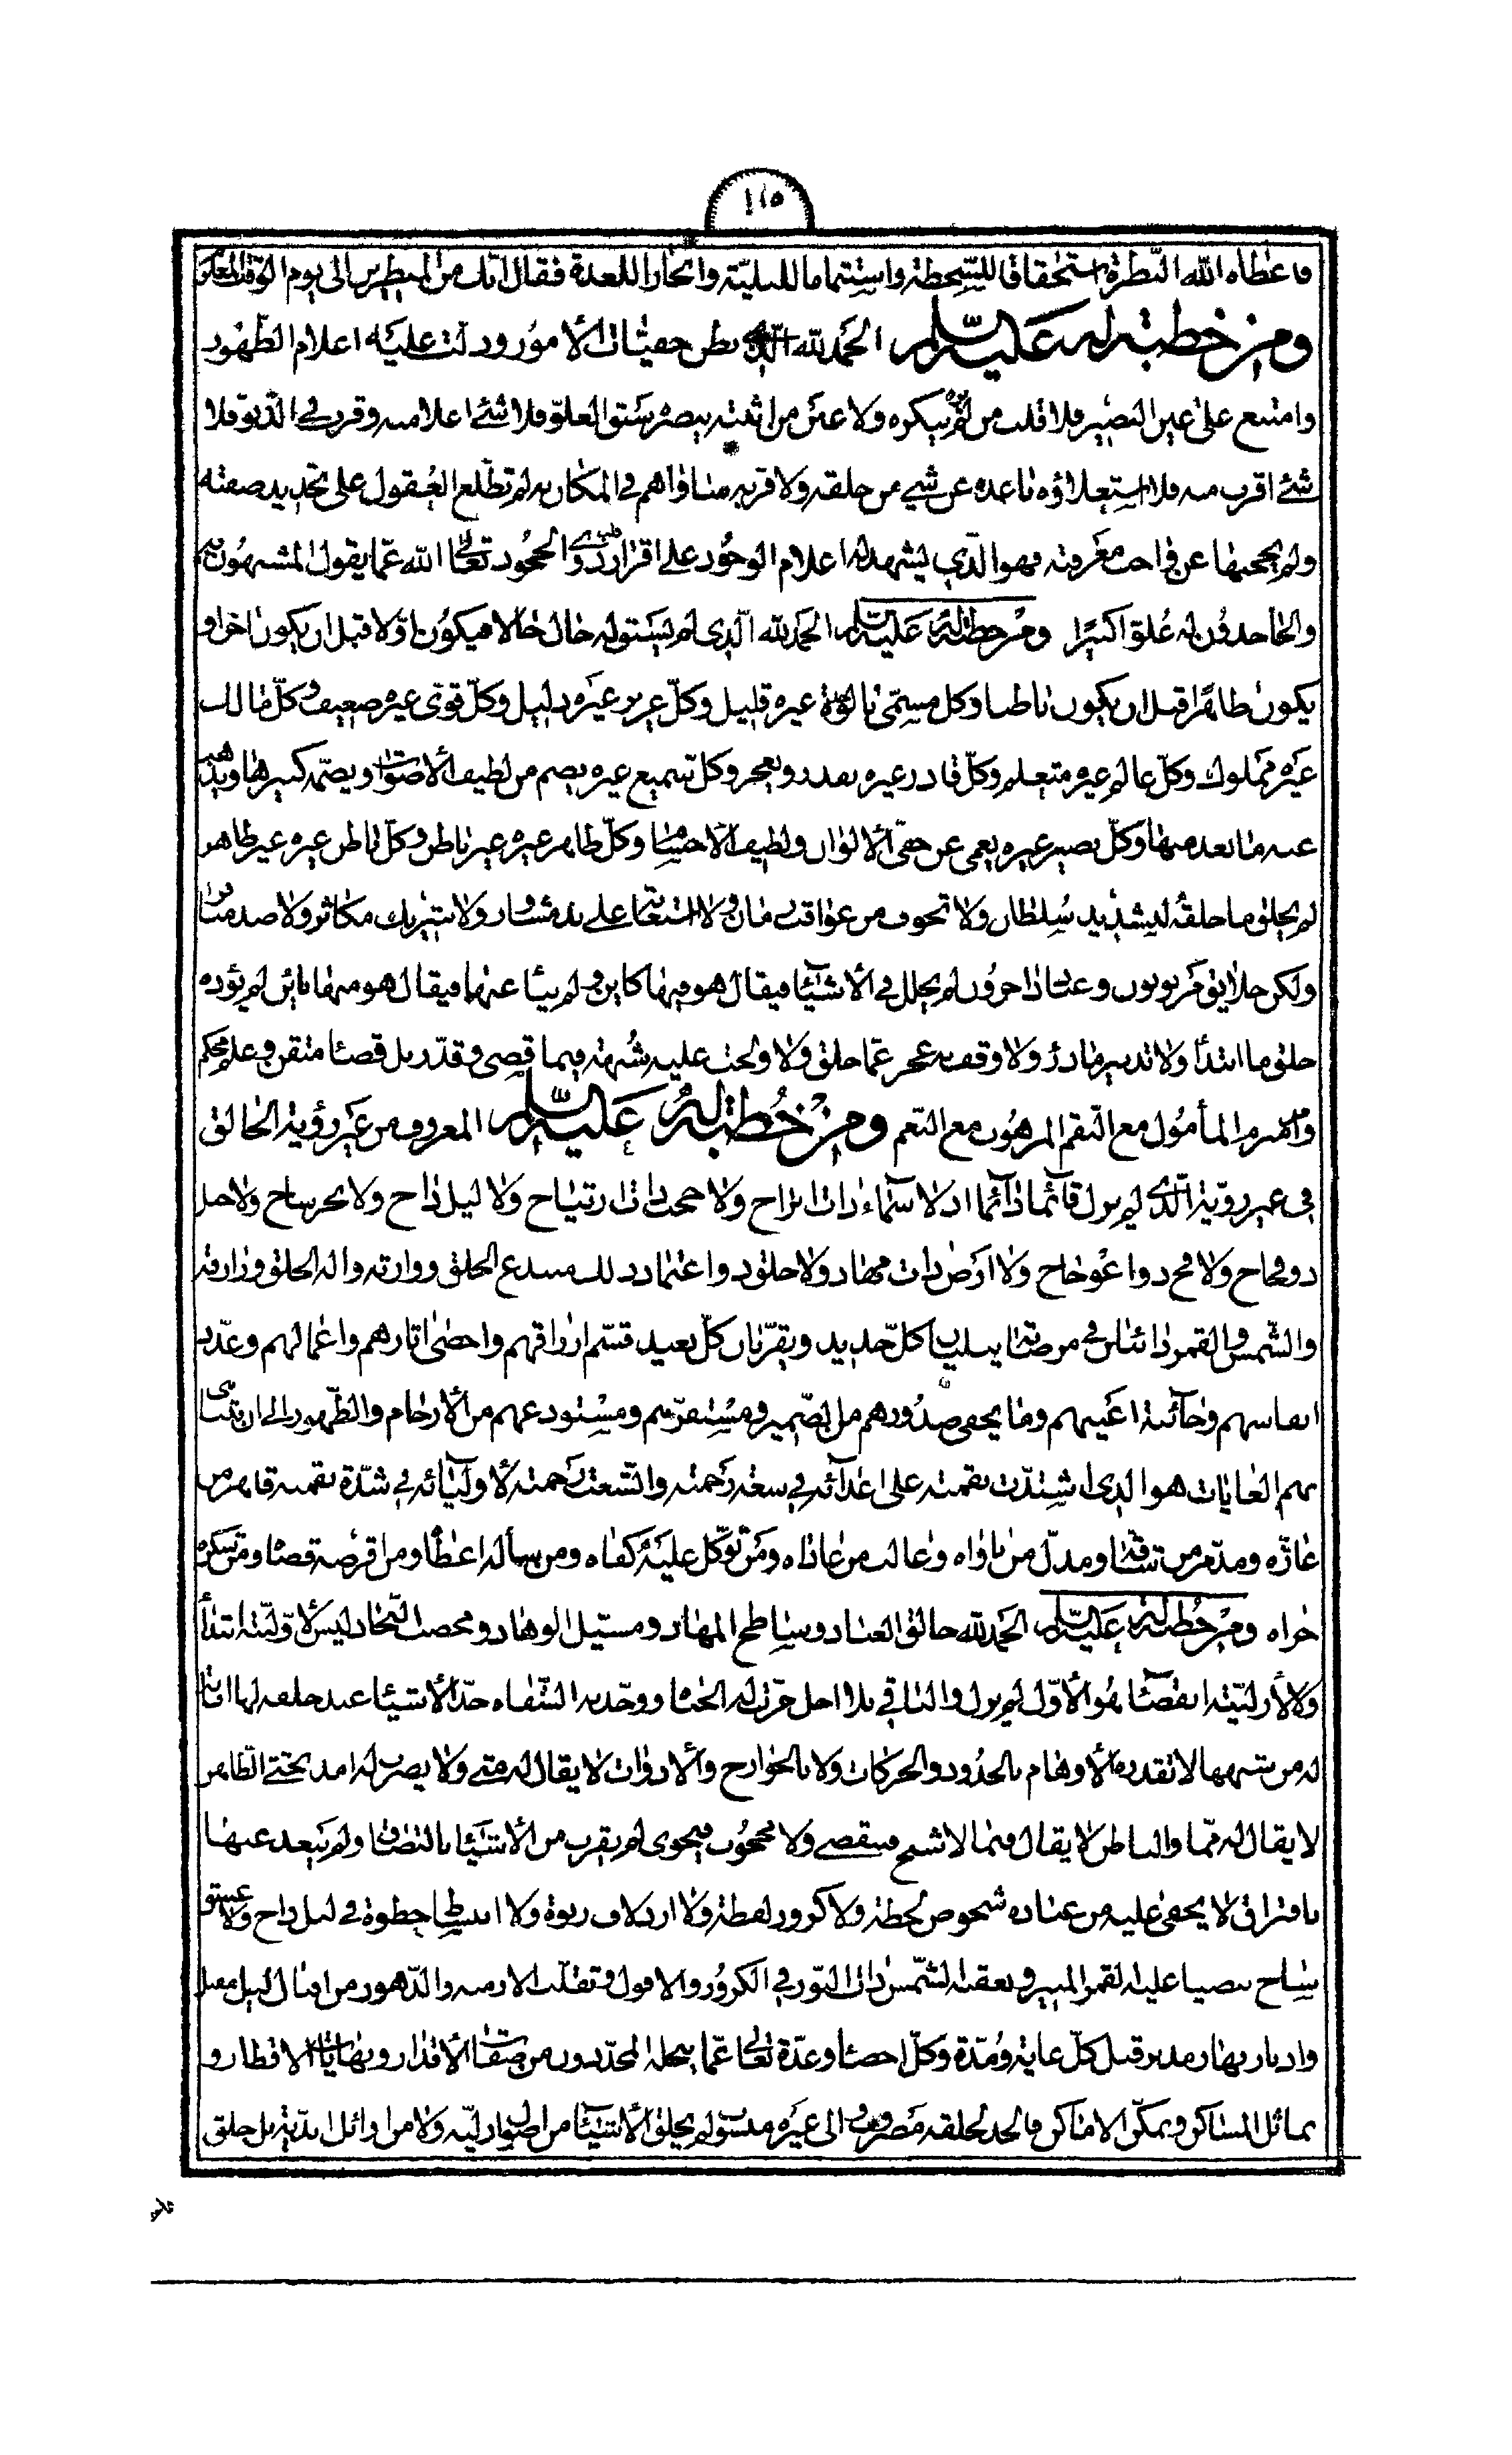 ١١٥
فاعطاه الله النظرة استحقاقا للسخطة واستتماما للبلية وانجازا للعدة فقال انك من المنظرين الى يوم الوقت المعلوم
ومن خطبة له عليه السلام الحمد لله الذي بطن خفيات الأمور ودلت عليه اعلام الظهور
وامتنع على عين البصير فلا قلب من لم يره ينكره ولا عين من اثبته يبصره سبق في العلو فلا شئ اعلا منه وقرب في الدنو فلا
شئ اقرب منه فلا استعلاؤه باعده عن شيء من خلقه ولا قربه ساواهم في المكان به لم تطلع العقول على تحديد صفته
ولم يحجبها عن واجب معرفته فهو الذي يشهد له اعلام الوجود على اقرار قلب ذي الجحود تعالى الله عما يقول المشبهون به
والجاحدون له علوا كبيرا ومن خطبة له عليه السلام الحمد لله الذي لم يسبق له حال حالا فيكون اولا قبل ان يكون اخرا و
يكون ظاهرا قبل ان يكون باطنا وكل مسمى بالوحدة غيره قليل وكل عزيز غيره ذليل وكل قوى غيره ضعيف وكل مالك
غيره مملوك وكل عالم غيره متعلم وكل قادر غيره يقدر ويعجز وكل سميع غيره يصم من لطيف الأصوات ويصمه كبيرها ويذهب
عنه ما بعد منها وكل بصير غيره يعمى عن خفى الألوان ولطيف الأجسام وكل ظاهر غيره غير باطن وكل باطن غيره غير ظاهر
لم يخلق ما خلقه لتشديد سلطان ولا تخوف من عواقب زمان ولا استعانة على ند مثاور ولا شريك مكاثر ولا ضد منافر
ولكن خلايق مربوبون وعباد داخرون لم يحلل في الأشياء فيقال هو فيها كاين ولم ينأ عنها فيقال هو منها باين لم يؤده
خلق ما ابتدأ ولا تدبير ما ذرأ ولا وقف به عجز عما خلق ولا ولجت عليه شبهة فيما قضى وقدر بل قضاء متقن وعلم محكم
وامر مبرم المأمول مع النقم المرهوب مع النعم ومن خطبة له عليه السلام المعروف من غير رؤية الخالق
في غير روية الذي لم يزل قائما دائما اذ لا سماء ذات ابراج ولا حجب ذات ارتياح ولا ليل داج ولا بحر ساج ولا جبل
ذو فجاج ولا فج ذو اعوجاج ولا ارض ذات مهاد ولا خلق ذو اعتماد ذلك مبتدع الخلق ووارثه واله الخلق ورازقه
والشمس والقمر دائبان في مرضاته يبليان كل جديد ويقربان كل بعيد قسم ارزاقهم واحصى اثارهم واعمالهم وعدد
انفاسهم وخائنة اعينهم وما يخفى صدورهم من الضمير ومستقرهم ومستودعهم من الأرحام والظهور الى ان تتناهى
بهم الغايات هو الذي اشتدت نقمته على اعدائه في سعة رحمته واتسعت رحمته لأوليائه في شدة نقمته قاهر من
عازه ومدمر من شاقه ومذل من ناواه وغالب من عاداه ومن توكل عليه كفاه ومن سأله اعطاه ومن اقرضه قضاه ومن شكره
جزاه ومن خطبة له عليه السلام الحمد لله خالق العباد وساطح المهاد ومسيل الوهاد ومخصب النجاد ليس لأوليته ابتداء
ولا لأزليته انقضاء هو الأول لم يزل والباقي بلا اجل خرت له الجباه ووحدته الشفاه حد الأشياء عند خلقه لها ابانة
له من شبهها لا تقدره الأوهام بالحدود والحركات ولا بالجوارح والأدوات لا يقال له متى ولا يضرب له امد بحتى الظاهر
لا يقال له مما والباطن لا يقال فيما لا شبح فيتقصى ولا محجوب فيحوى لم يقرب من الأشياء بالتصاق ولم يبعد عنها
بافتراق لا يخفى عليه من عباده شخوص لحظة ولا كرور لفظة ولا ازدلاف ربوة ولا انبساط خطوة في ليل داج ولا غسق
ساج يتفيأ عليه القمر المنير وتعقبه الشمس ذات النور في الكرور والافول وتقلب الازمنه والدهور من اقبال ليل مقبل
وادبار نهار مدبر قبل كل غاية ومدة وكل احصاء وعدة تعالى عما ينحله المحددون من صفات الأقدار ونهايات الاقطار و
تماثل المساكن وتمكن الاماكن فالحد لخلقه مضروب والى غيره منسوب لم يخلق الأشياء من اصول ازلية ولا من اوائل ابدية بل خلق